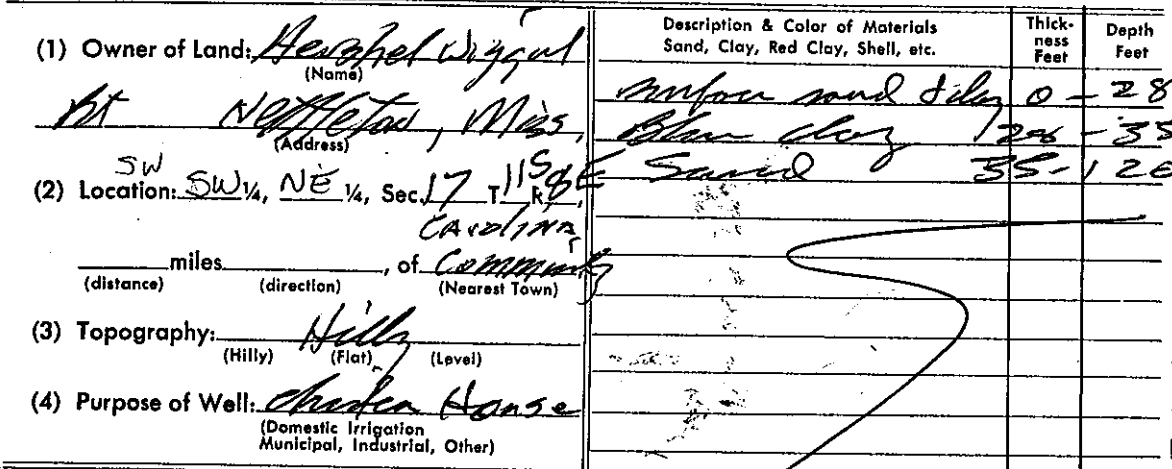 (1) Owner of Land: Hershel Wiggul
(Name)
Rt Nettleton, Miss,
(Address)
SW
(2) Location: SW ¼, NE ¼, Sec. 17 T. 11S R. 8E,
Carolina
miles, of Community
(distance) (direction) (Nearest Town)
(3) Topography: Hilly
(Hilly) (Flat) (Level)
(4) Purpose of Well: Chicken House
(Domestic Irrigation
Municipal, Industrial, Other)
Description & Color of Materials
Sand, Clay, Red Clay, Shell, etc.
Thick-
ness
Feet
Depth
Feet
surface sand & clay 0 - 28
Blue clay 28 - 35
Sand 35 - 126